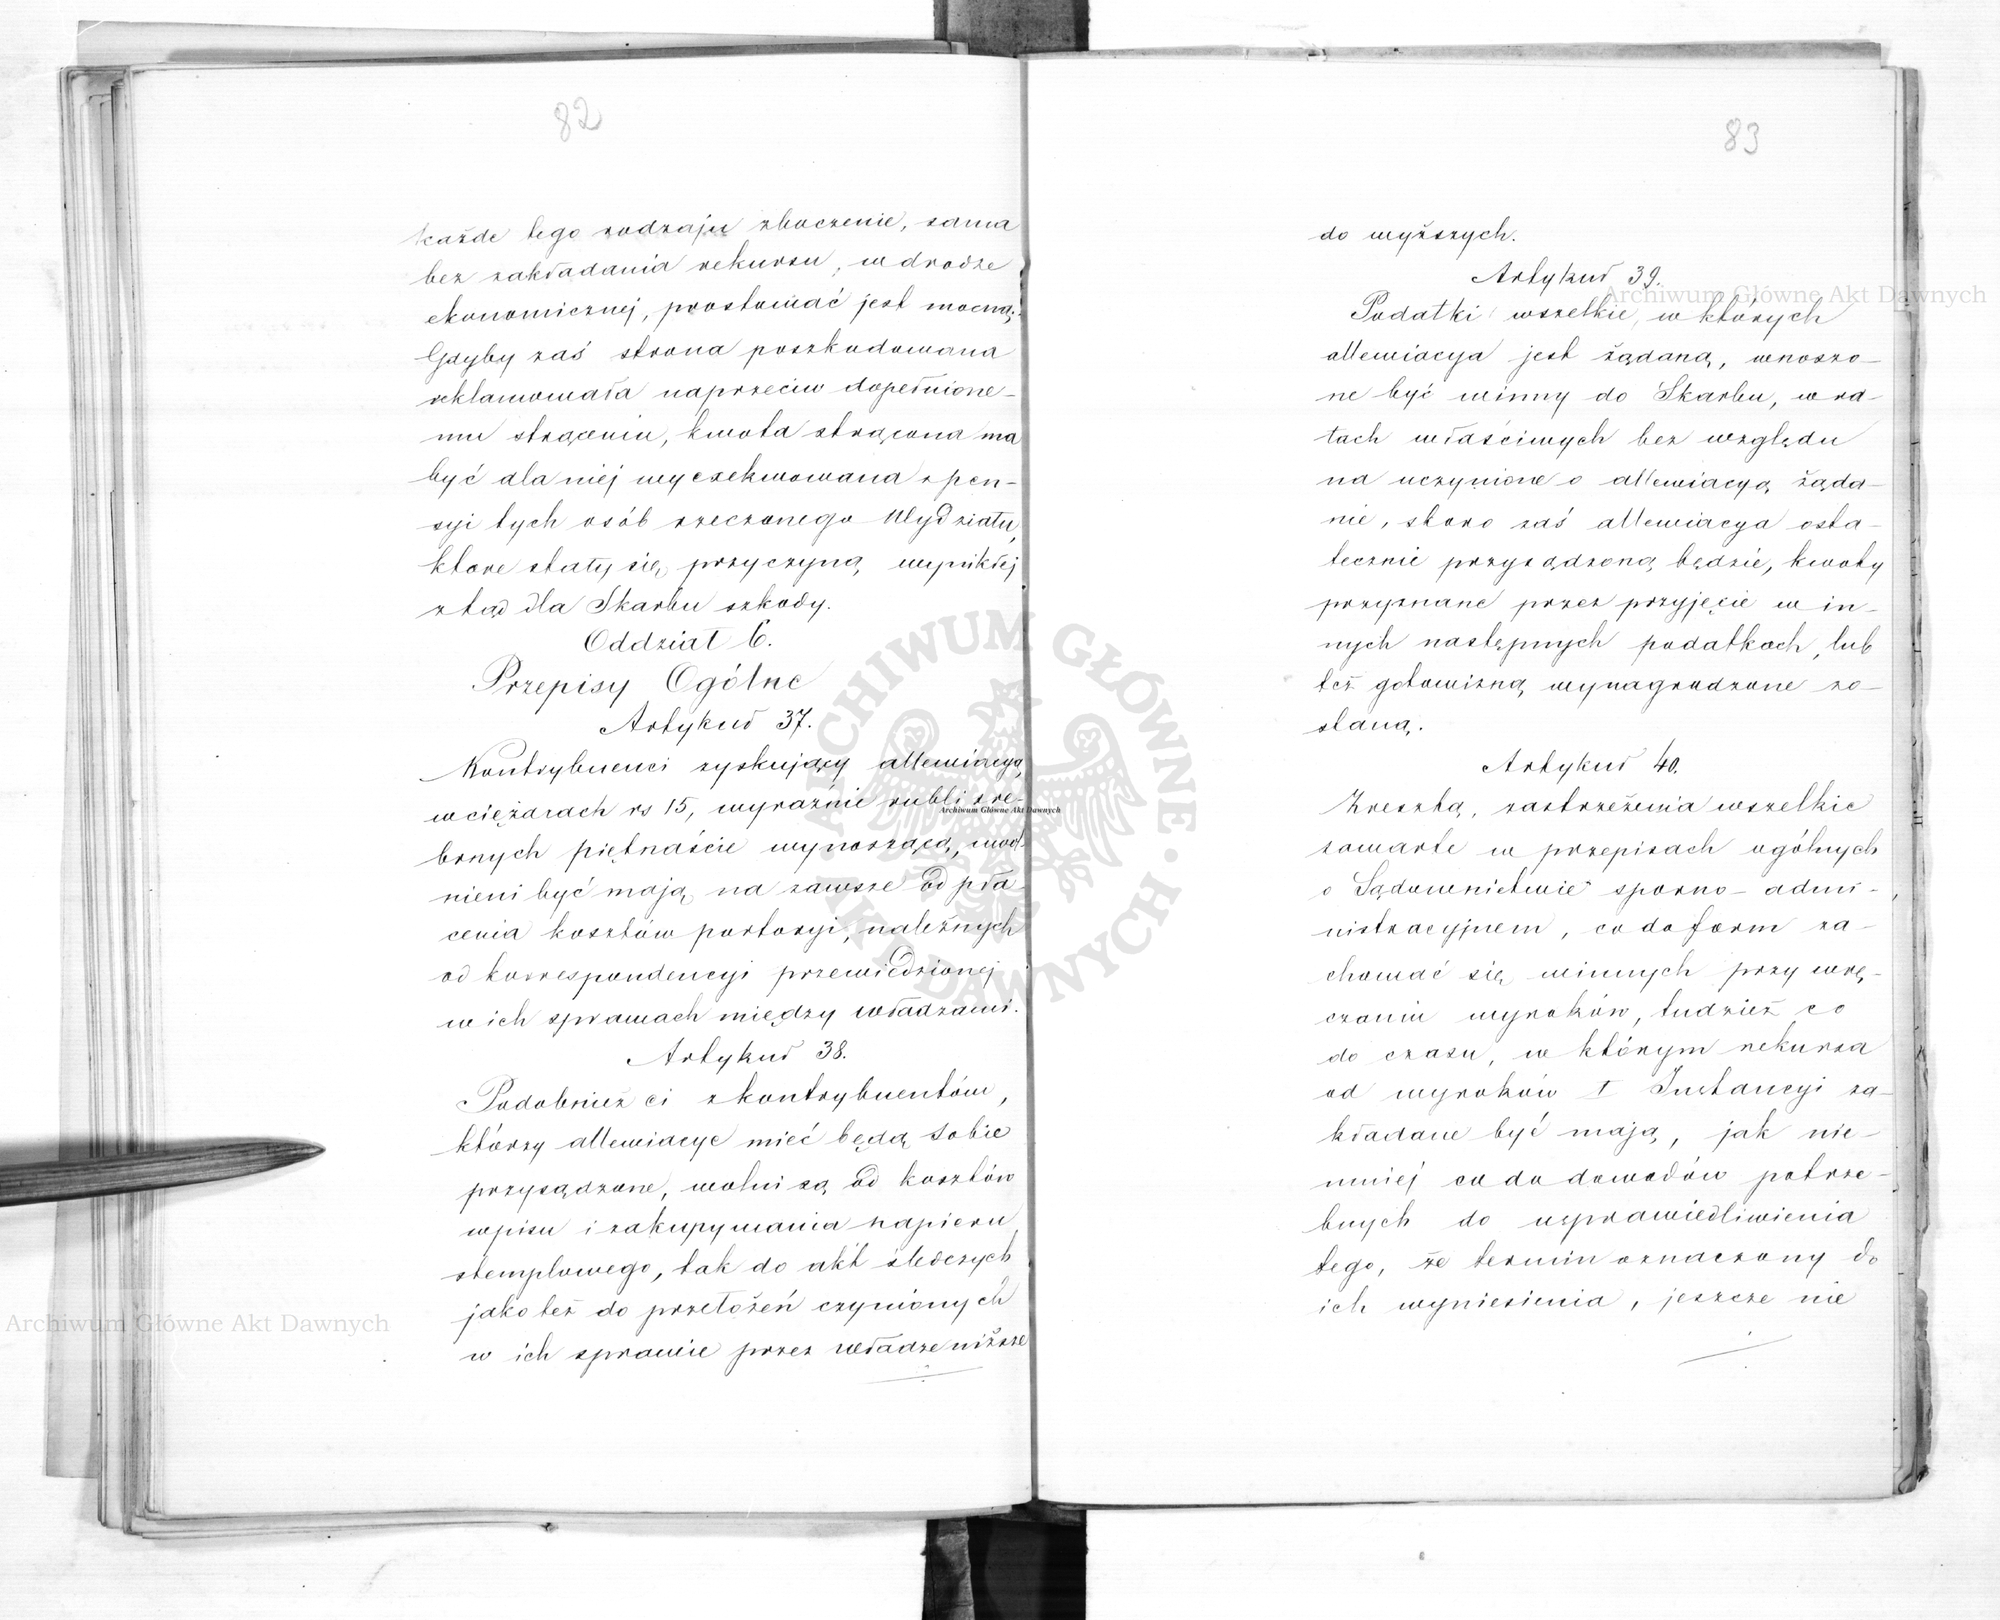 82
każde tego rodzaju zboczenie, sama
bez zakładania rekursu, w drodze
ekonomicznej, prostować jest mocną.
Gdyby zaś strona poszkodowana
reklamowała naprzeciw dopełnione-
mu strąceniu, kwota strącona ma
być dla niej wyexekwowana z pen-
syi tych osób rzeczonego Wydziału,
które stały się przyczyną wynikłej
ztąd dla Skarbu szkody.
Oddział 6.
Przepisy Ogólne
Artykuł 37.
Kontrybuenci zyskujący allewiacyą
w ciężarach rs 15, wyraźnie rubli sre-
brnych piętnaście wynoszącą, uwol-
nieni być mają na zawsze od pła-
cenia kosztów portoryi, należnych
od korrespondencyi przewiedzionej
w ich sprawach między władzami.
Artykuł 38.
Podobnież ci z kontrybuentów,
którzy allewiacye mieć będą sobie
przysądzone, wolni są od kosztów
wpisu i zakupywania papieru
stemplowego, tak do akt śledczych
jako też do przełożeń czynionych
w ich sprawie przez władze niższe
83
do wyższych.
Artykuł 39.
Podatki wszelkie, w których
allewiacya jest żądaną, wnoszo-
ne być winny do Skarbu, w ra-
tach właściwych bez względu
na uczynione o allewiacyą żąda-
nie, skoro zaś allewiacya osta-
tecznie przysądzoną będzie, kwoty
przyznane przez przyjęcie w in-
nych następnych podatkach, lub
też gotowizną wynagrodzone zo-
staną.
Artykuł 40.
Zresztą, zastrzeżenia wszelkie
zawarte w przepisach ogólnych
o Sądownictwie sporno-admi-
nistracyjnem, co do form za-
chować się winnych przy wrę-
czaniu wyroków, tudzież co
do czasu, w którym rekursa
od wyroków I Instancyi za-
kładane być mają, jak nie-
mniej co do dowodów potrze-
bnych do usprawiedliwienia
tego, że termin oznaczony do
ich wyniesienia, jeszcze nie
Archiwum Główne Akt Dawnych
Archiwum Główne Akt Dawnych
Archiwum Główne Akt Dawnych
ARCHIWUM GŁÓWNE AKT DAWNYCH